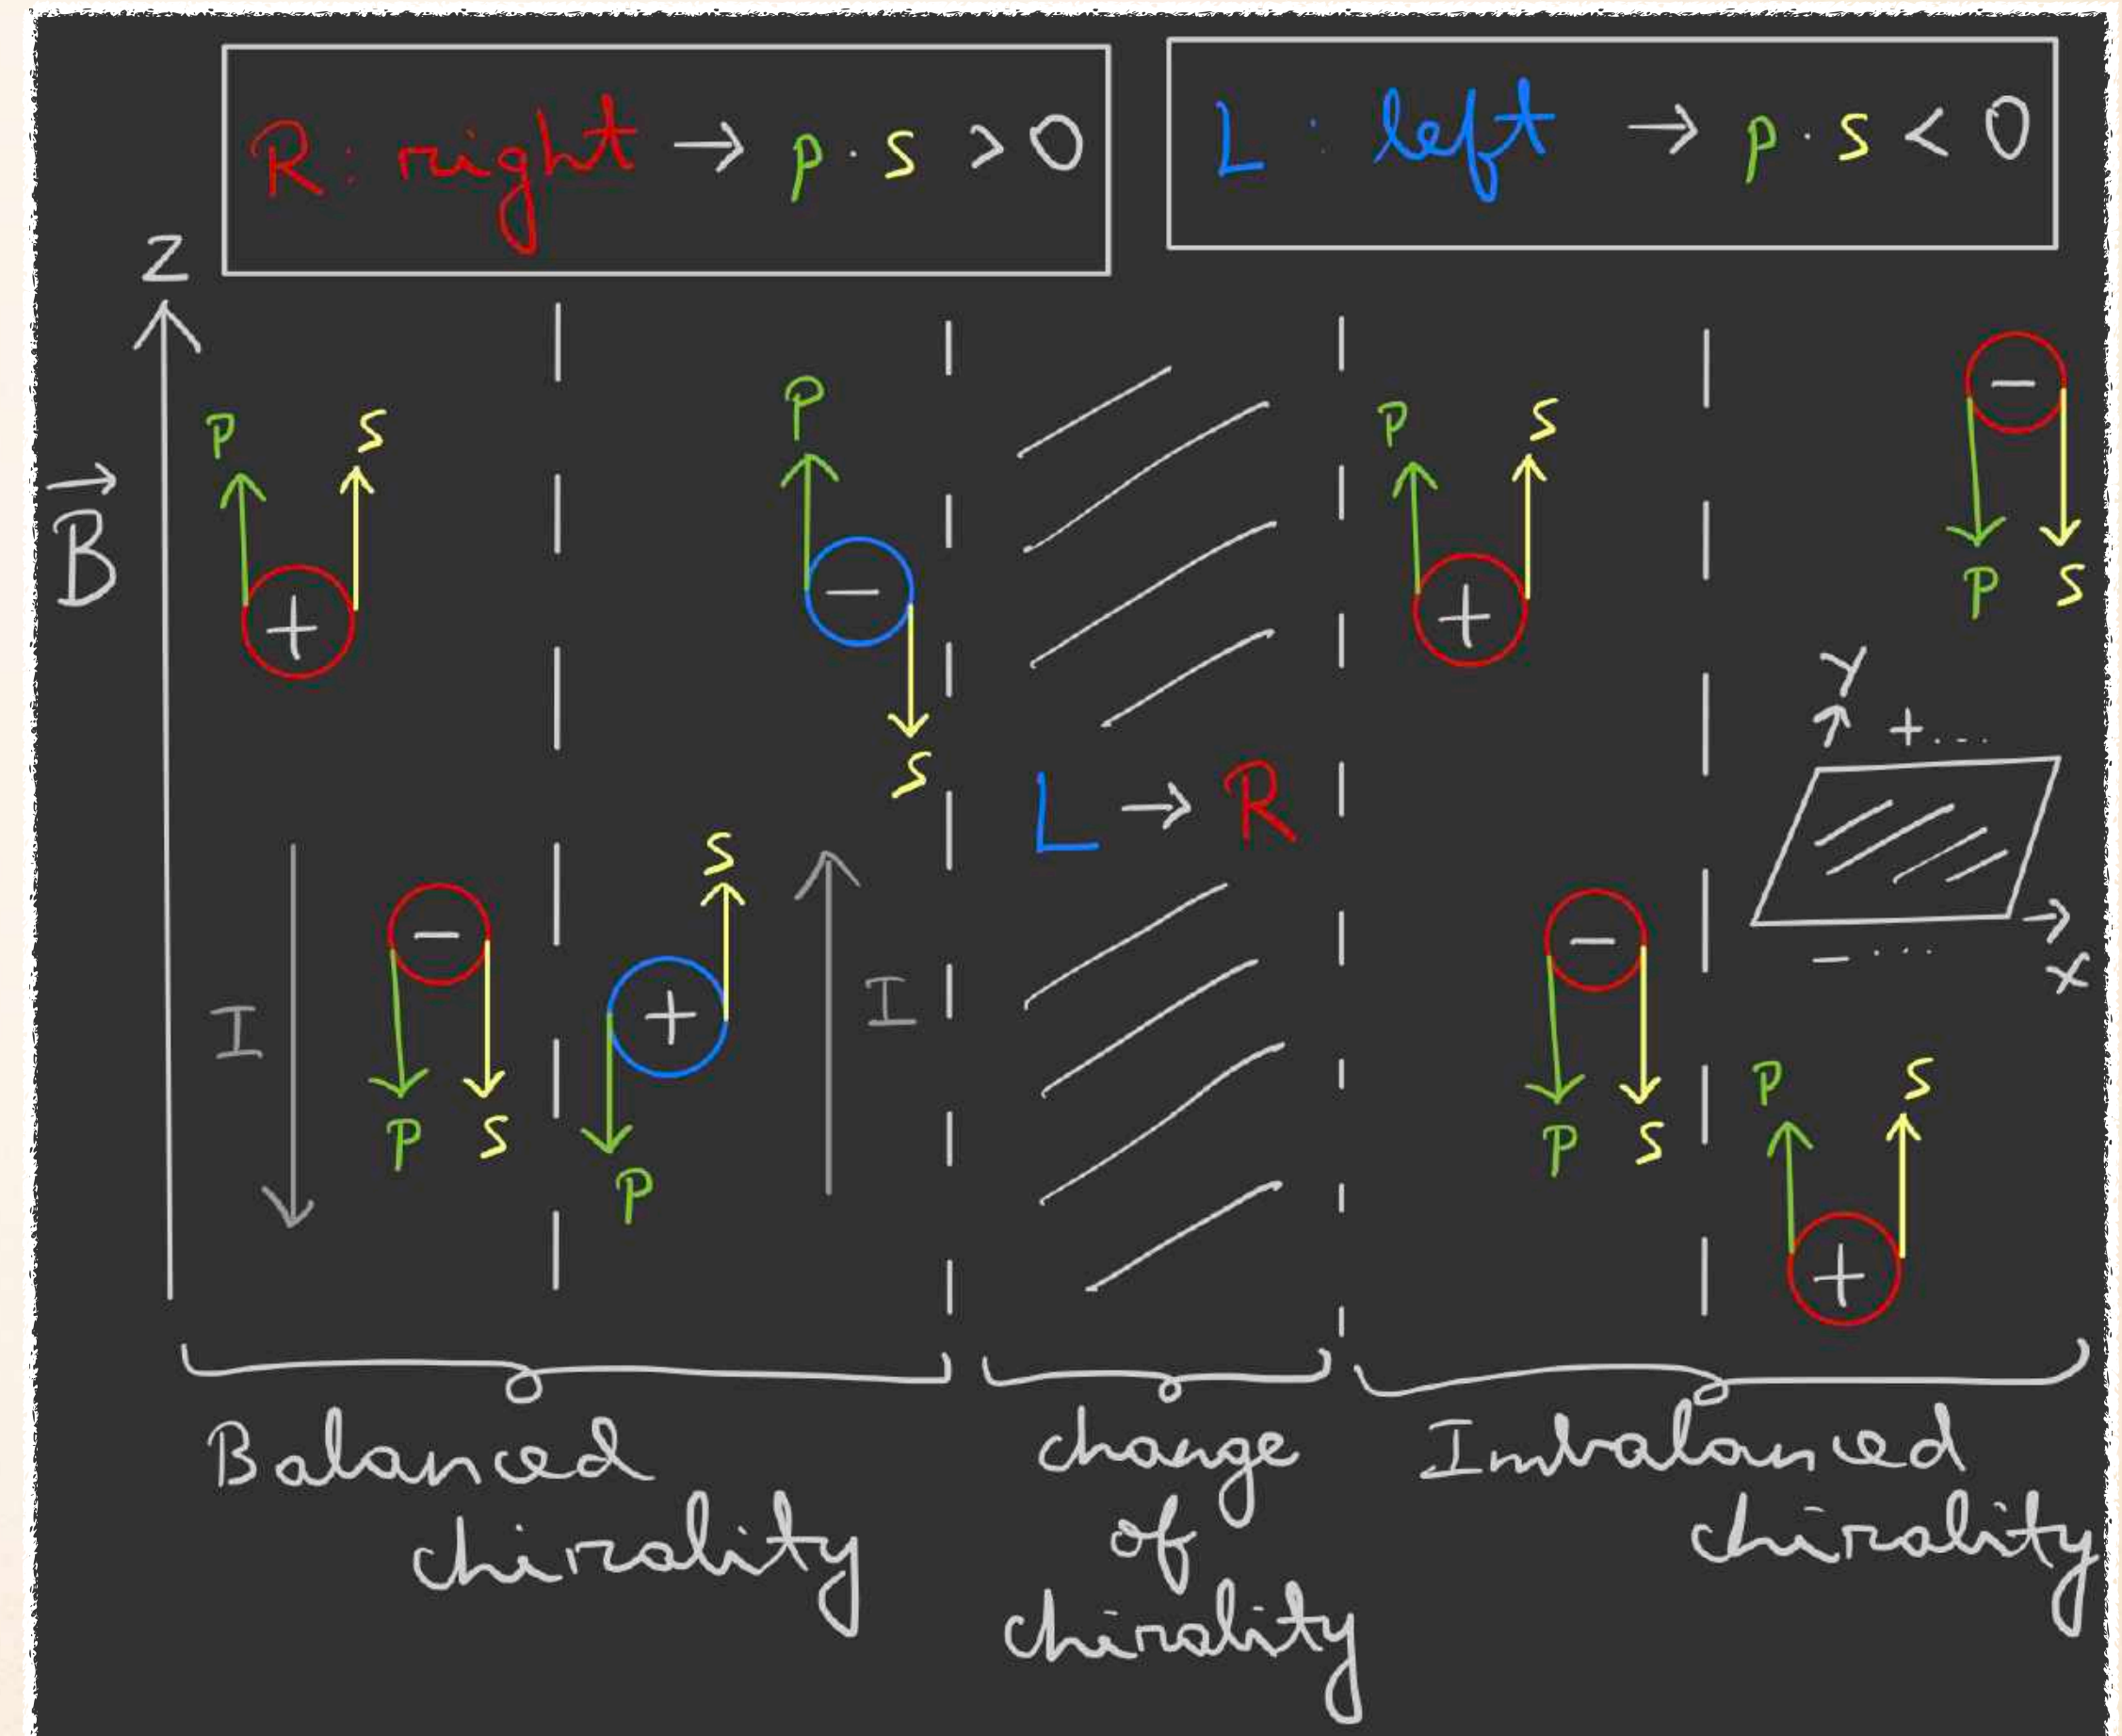 R: right → p · s > 0
L: left → p · s < 0
Z
B⃗
P S
+
P
−
S
P S
+
−
P S
Y
+ . . .
− . . .
X
L → R
I
−
P S
S
+
P
I
−
P S
P S
+
Balanced
chirality
change
of
chirality
Imbalanced
chirality